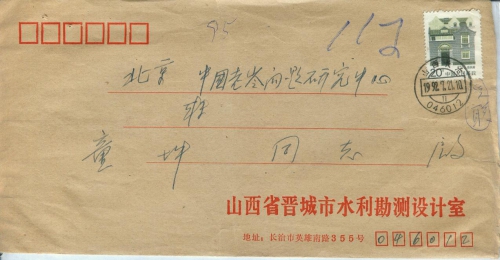 95
112
北京 中国老龄问题研究中心
童坤 同志 收
山西省晋城市水利勘测设计室
地址：长治市英雄南路355号 046012
1992.7.21.18
046012